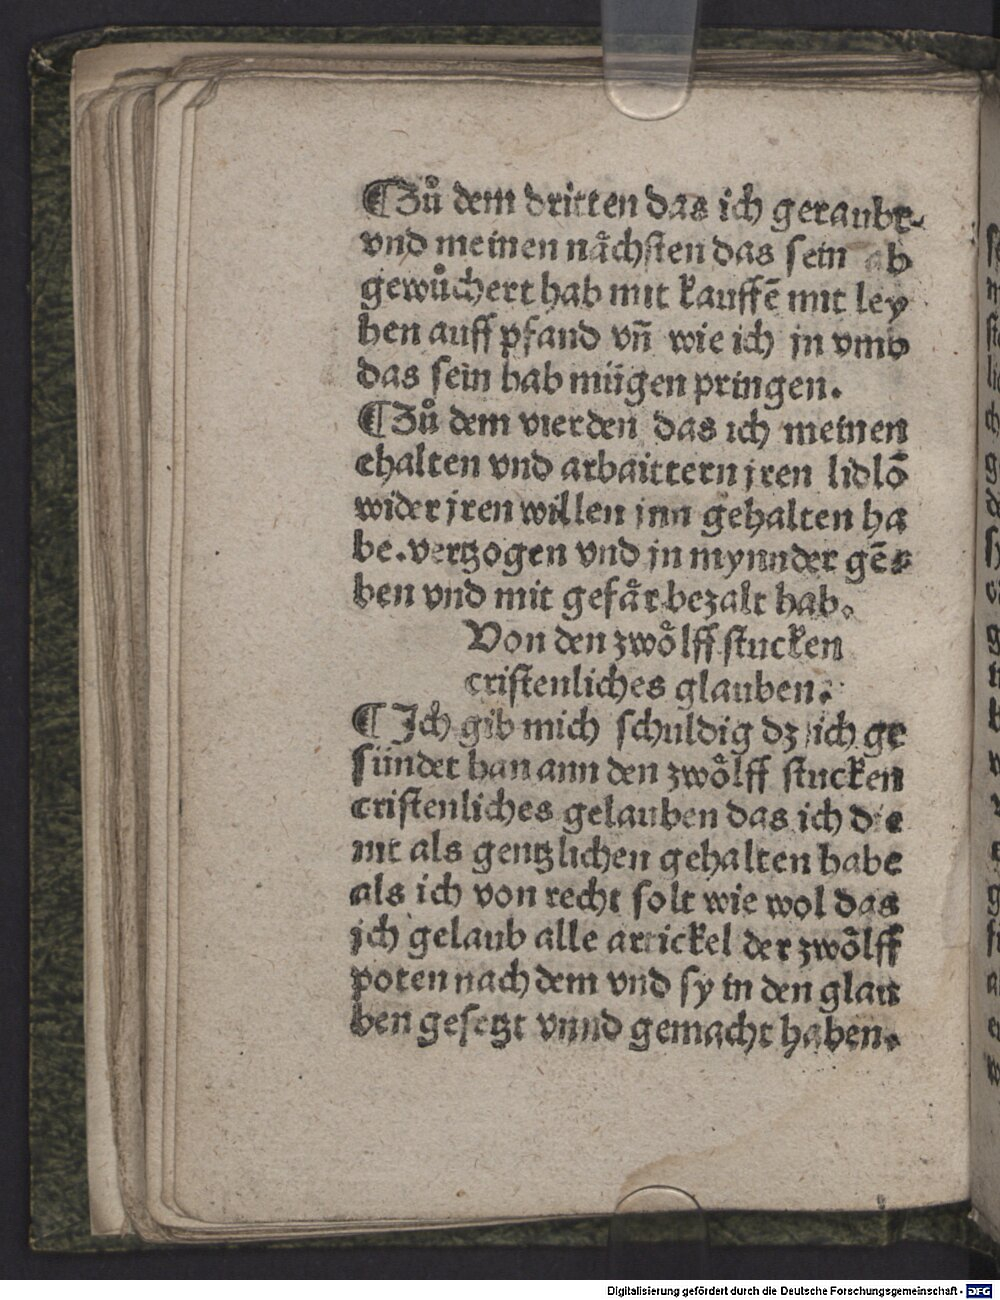 ¶Zů dem dritten das ich geraubt
vnd meinen nächsten das sein ab
gewůchert hab mit kauffē mit ley
hen auff pfand vn̄ wie ich jn vmb
das sein hab mügen pringen.
¶Zů dem vierden das ich meinen
ehalten vnd arbaittern jren lidlō
wider jren willen jnn gehalten ha
be.vertzogen vnd jn mynnder gē
ben vnd mit gefär bezalt hab.
Von den zwölff stucken
cristenliches glauben.
¶ Ich gib mich schuldig dz ich ge
sündet han ann den zwölff stucken
cristenliches gelauben das ich die
nit als gentzlichen gehalten habe
als ich von recht solt wie wol das
jch gelaub alle artickel der zwölff
poten nach dem vnd sy in den glau
ben gesetzt vnnd gemacht haben.
Digitalisierung gefördert durch die Deutsche Forschungsgemeinschaft - DFG